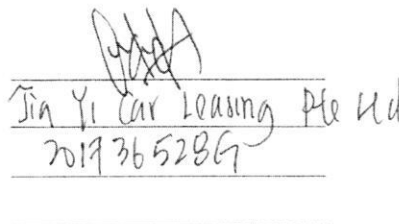 Jia Yi Car Leasing Pte Ltd
201736528G